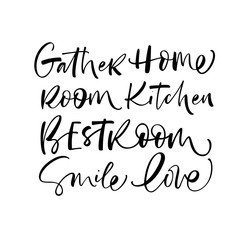 Gather Home
Room Kitchen
BESTROOM
Smile love